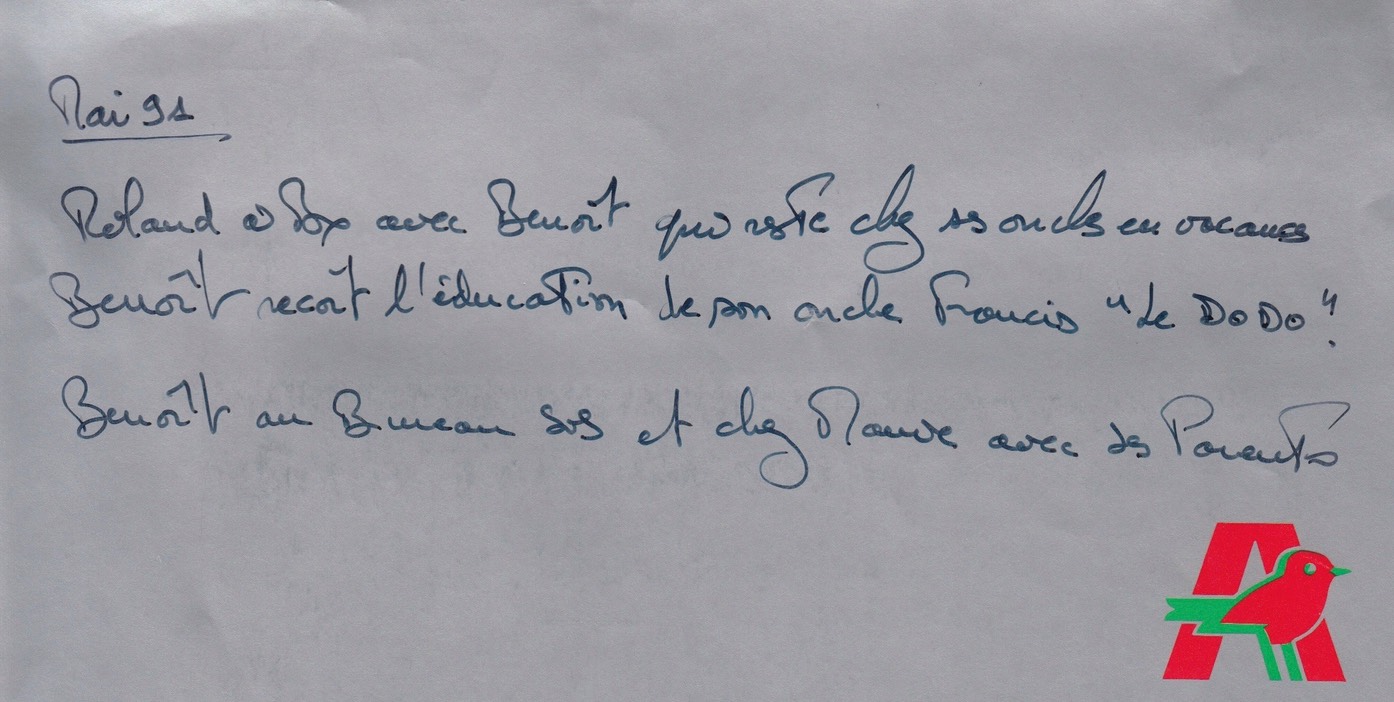 Mai 91
Roland à Dax avec Benoît qui reste chez ses oncles en vacances
Benoît recoit l'éducation de son oncle Francis "Le DoDo".
Benoît au Bureau SVS et chez Mauve avec ses Parents
A